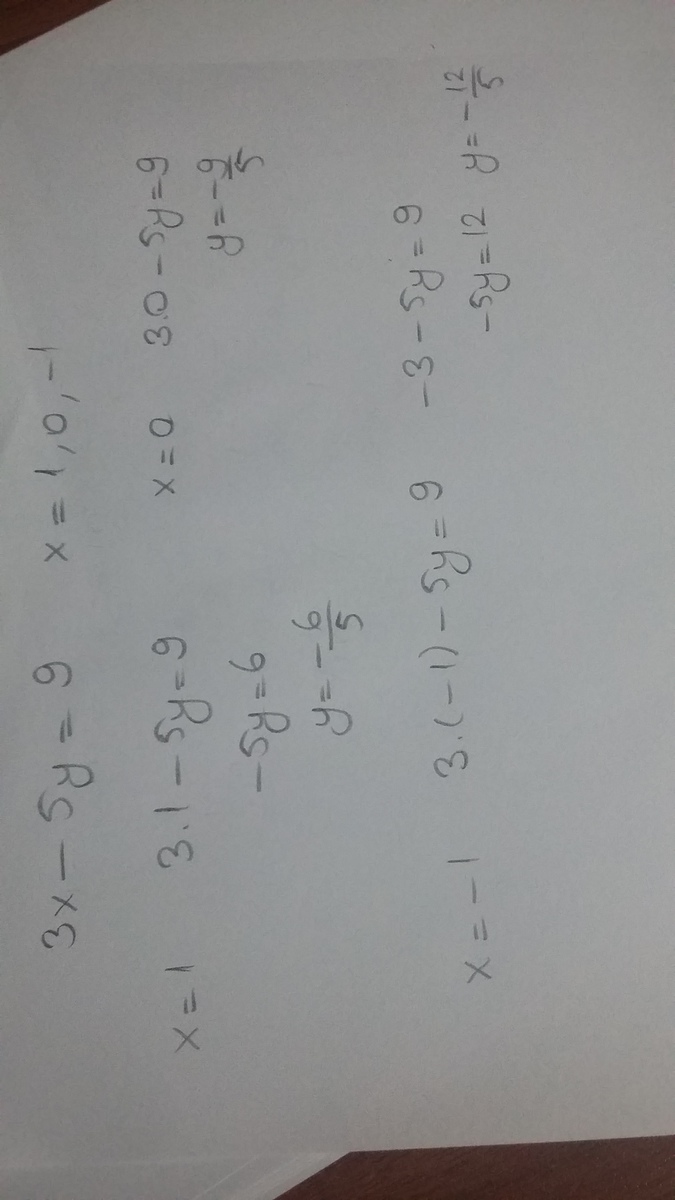 3x - 5y = 9 x = 1, 0, -1
x = 1 3.1 - 5y = 9 x = 0 3.0 - 5y = 9
-5y = 6 y = -9/5
y = -6/5
x = -1 3.(-1) - 5y = 9 -3 - 5y = 9
-5y = 12 y = -12/5